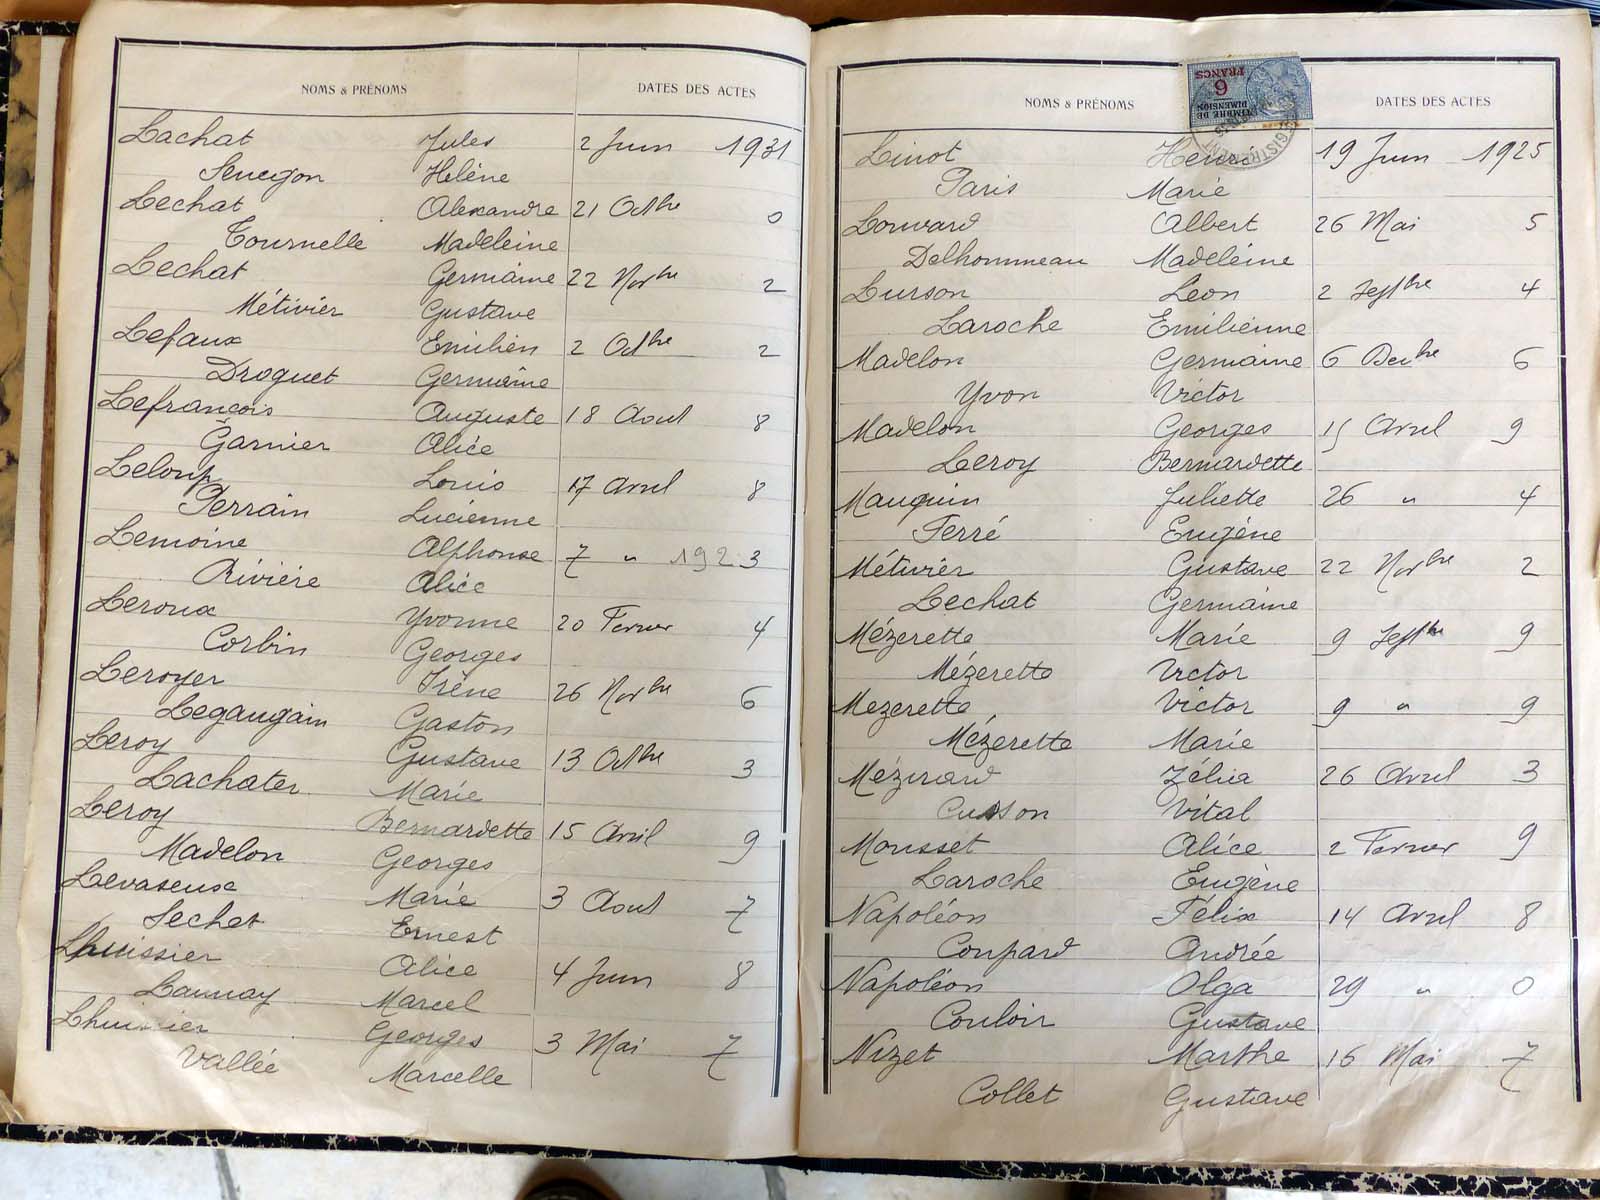 NOMS & PRÉNOMS DATES DES ACTES
Lachat Jules 2 Juin 1931
Senegon Hélène
Lechat Alexandre 21 Octbre 0
Tournelle Madeleine
Lechat Germaine 22 Novbre 2
Métivier Gustave
Lefaux Emilien 2 Octbre 2
Droguet Germaine
Lefrançois Auguste 18 Aout 8
Garnier Alice
Leloup Louis 17 Avril 8
Perrain Lucienne
Lemoine Alphonse 7 " 1923
Rivière Alice
Leroux Yvonne 20 Fevrier 4
Corbin Georges
Leroyer Irène 26 Novbre 6
Legaugain Gaston
Leroy Gustave 13 Octbre 3
Lachater Marie
Leroy Bernardette 15 Avril 9
Madelon Georges
Levaseux Marie 3 Aout 7
Sechet Ernest
Lhuissier Alice 4 Juin 8
Launay Marcel
Lhuissier Georges 3 Mai 7
Vallée Marcelle
NOMS & PRÉNOMS DATES DES ACTES
TIMBRE DE DIMENSION
6
FRANCS
Linot Henri 19 Juin 1925
Paris Marie
Louvard Albert 26 Mai 5
Delhommeau Madeleine
Lurson Leon 2 Septbre 4
Laroche Emilienne
Madelon Germaine 6 Decbre 6
Yvon Victor
Madelon Georges 15 Avril 9
Leroy Bernardette
Mauquin Juliette 26 " 4
Ferré Eugène
Métivier Gustave 22 Novbre 2
Lechat Germaine
Mézerette Marie 9 Septbre 9
Mézerette Victor
Mezerette Victor 9 " 9
Mézerette Marie
Mézirard Zélia 26 Avril 3
Cusson Vital
Mousset Alice 2 Fevrier 9
Laroche Eugène
Napoléon Félix 14 Avril 8
Coupard Andrée
Napoléon Olga 29 " 0
Couloir Gustave
Nizet Marthe 16 Mai 7
Collet Gustave